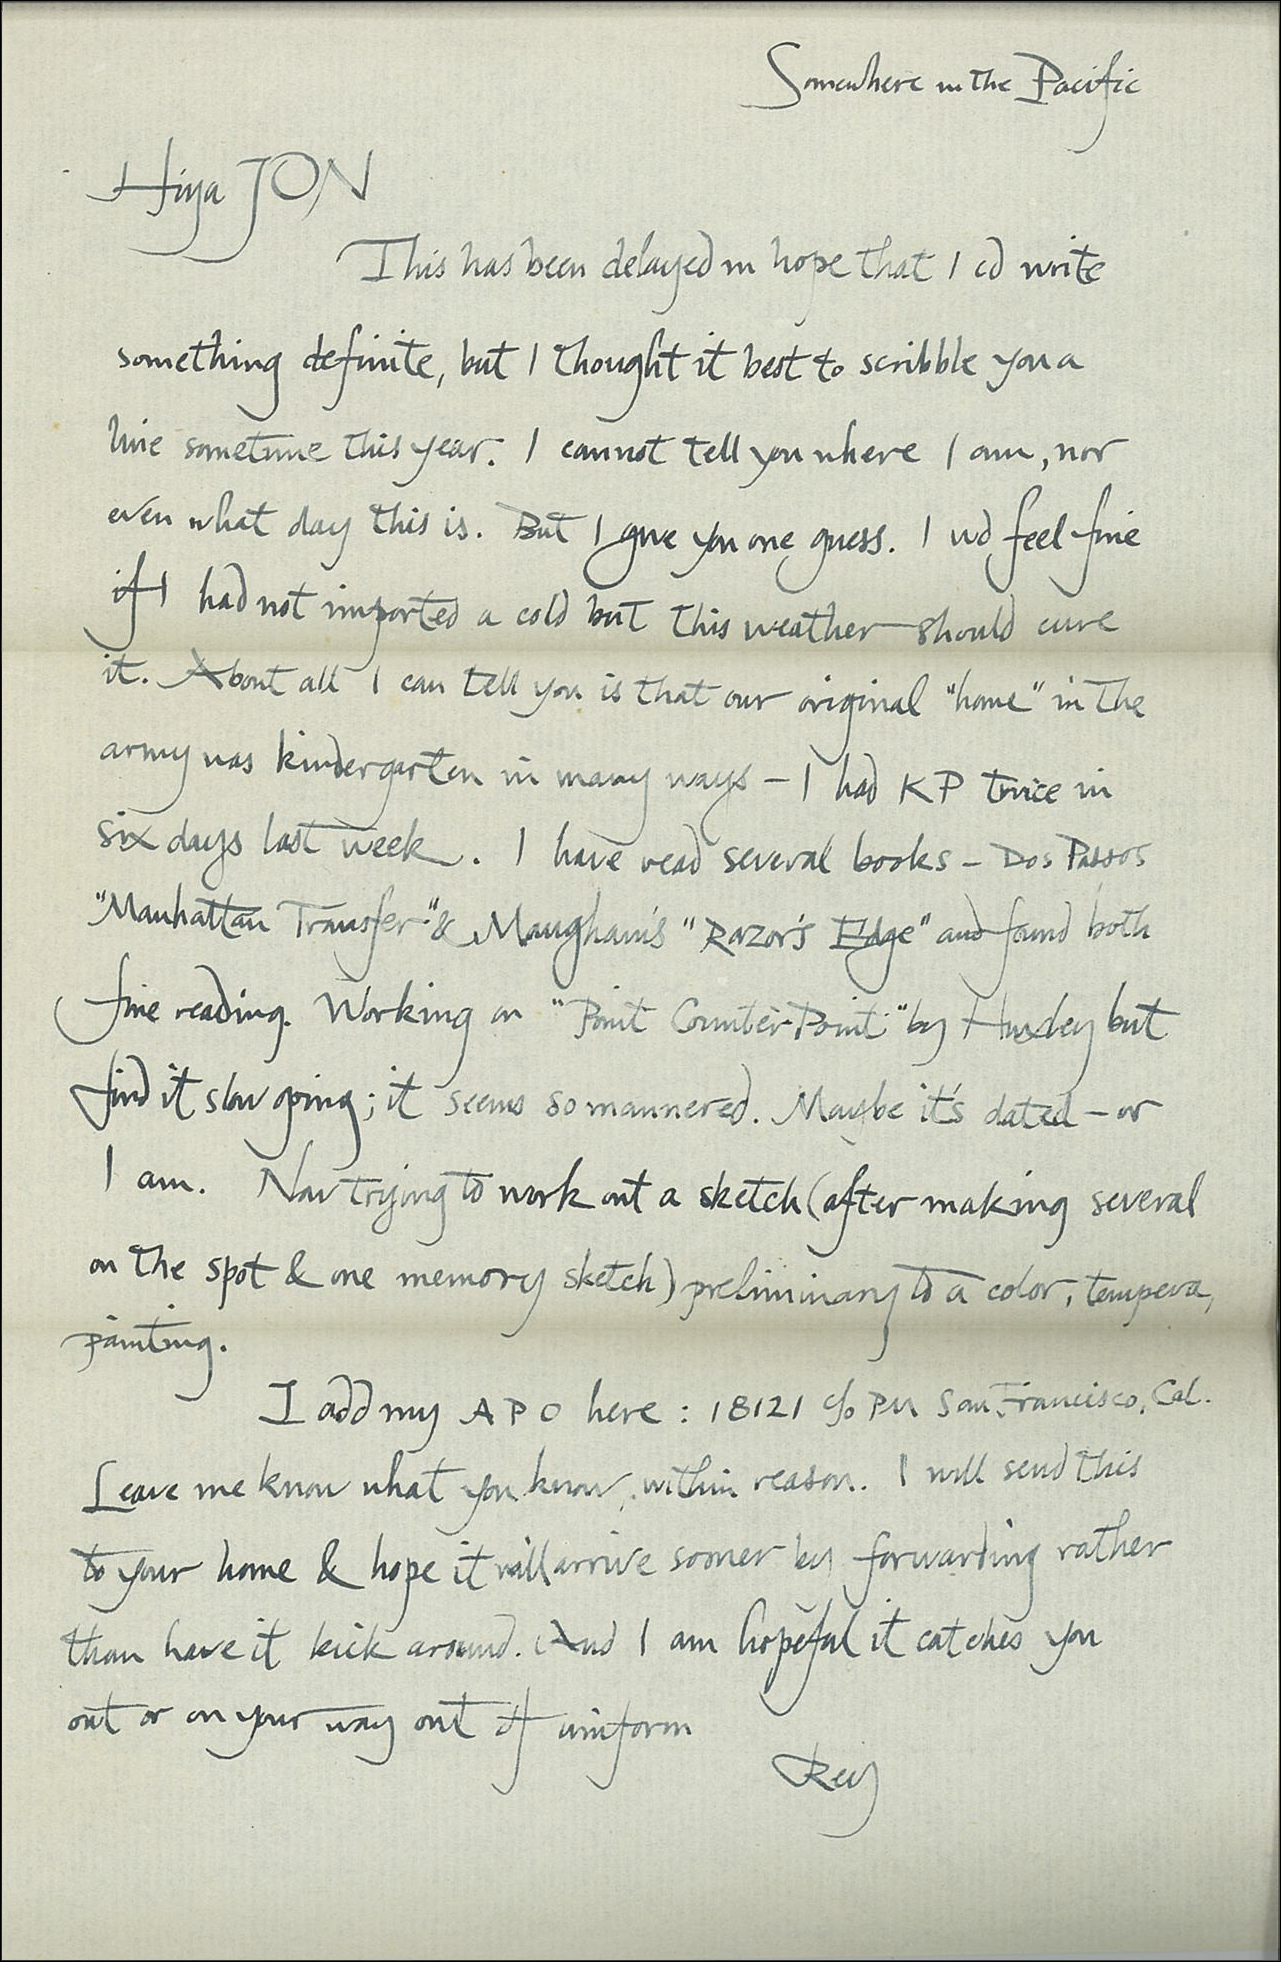 Somewhere in the Pacific
Hiya JON
This has been delayed in hope that I cd write
something definite, but I thought it best to scribble you a
line sometime this year. I cannot tell you where I am, nor
even what day this is. But I give you one guess. I wd feel fine
if I had not imported a cold but this weather should cure
it. About all I can tell you is that our original "home" in the
army was kindergarten in many ways – I had KP twice in
six days last week. I have read several books – Dos Passos
"Manhattan Transfer" & Maugham's "Razor's Edge" and found both
fine reading. Working on "Point Counter-Point" by Huxley but
find it slow going; it seems so mannered. Maybe it's dated – or
I am. Now trying to work out a sketch (after making several
on the spot & one memory sketch) preliminary to a color, tempera,
painting.
I add my APO here: 18121 c/o PM San Francisco, Cal.
Leave me know what you know, within reason. I will send this
to your home & hope it will arrive sooner by forwarding rather
than have it kick around. And I am hopeful it catches you
out or on your way out of uniform